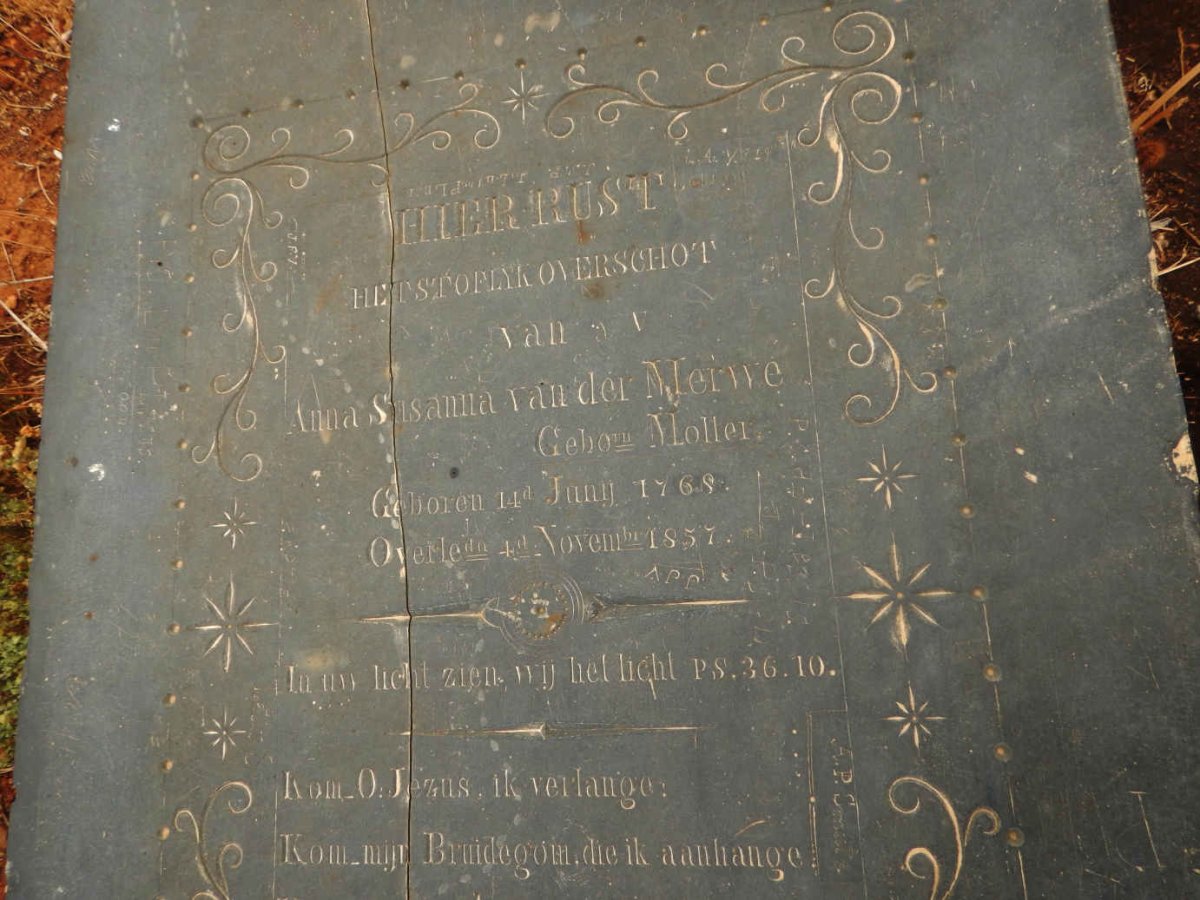 HIER RUST
HET STOFLYK OVERSCHOT
van
Anna Susanna van der Merwe
Geborn Moller.
Geboren 14d Junij 1768.
Overledn 4d Novembr 1857.
In uw licht zien wij het licht PS.36.10.
Kom O: Jezus, ik verlange:
Kom mijn Bruidegom, die ik aanhange